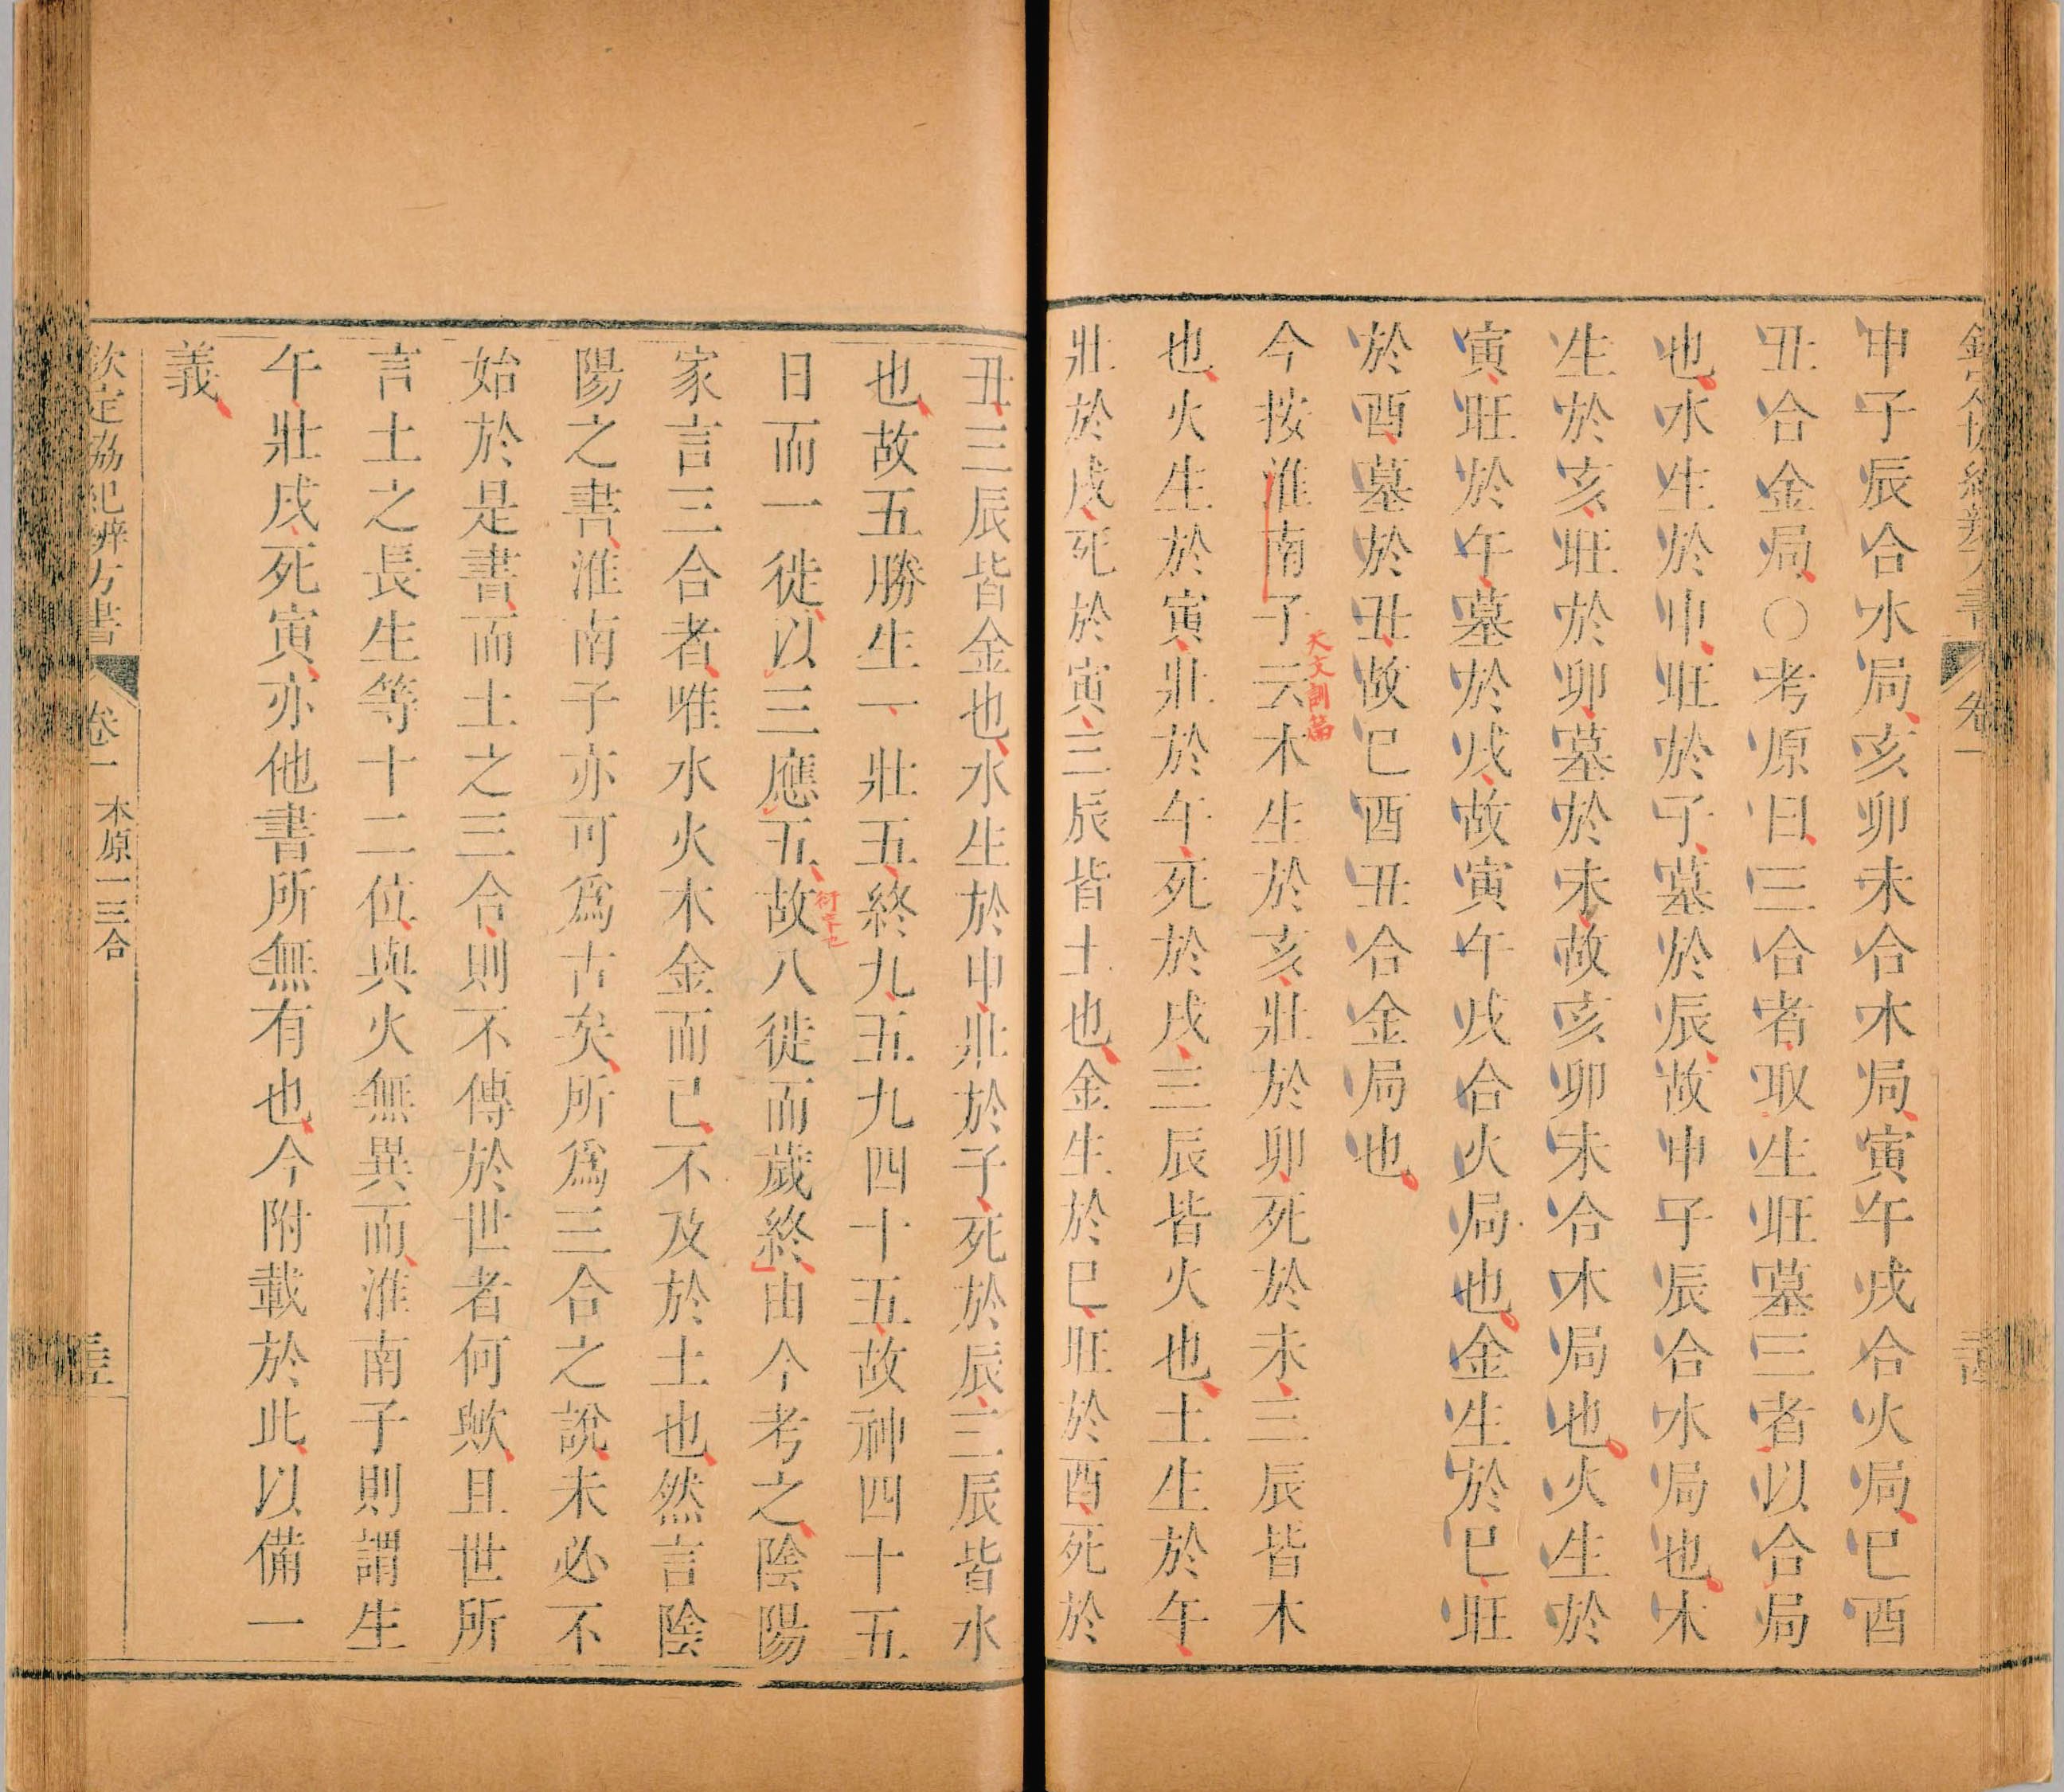 申子辰合水局亥卯未合木局寅午戌合火局巳酉
丑合金局○考原曰三合者取生旺墓三者以合局
也水生於申旺於子墓於辰故申子辰合水局也木
生於亥旺於卯墓於未故亥卯未合木局也火生於
寅旺於午墓於戌故寅午戌合火局也金生於巳旺
於酉墓於丑故巳酉丑合金局也
今按淮南子云木生於亥壯於卯死於未三辰皆木
天文訓篇
也火生於寅壯於午死於戌三辰皆火也土生於午
壯於戌死於寅三辰皆土也金生於巳旺於酉死於
丑三辰皆金也水生於申壯於子死於辰三辰皆水
也故五勝生一壯五終九五九四十五故神四十五
日而一徙以三應五故八徙而歲終由今考之陰陽
衍字也
家言三合者唯水火木金而已不及於土也然言陰
陽之書淮南子亦可爲古矣所爲三合之說未必不
始於是書而土之三合則不傳於世者何歟且世所
言土之長生等十二位與火無異而淮南子則謂生
午壯戌死寅亦他書所無有也今附載於此以備一
義
欽定協紀辨方書 卷一 本原一三合